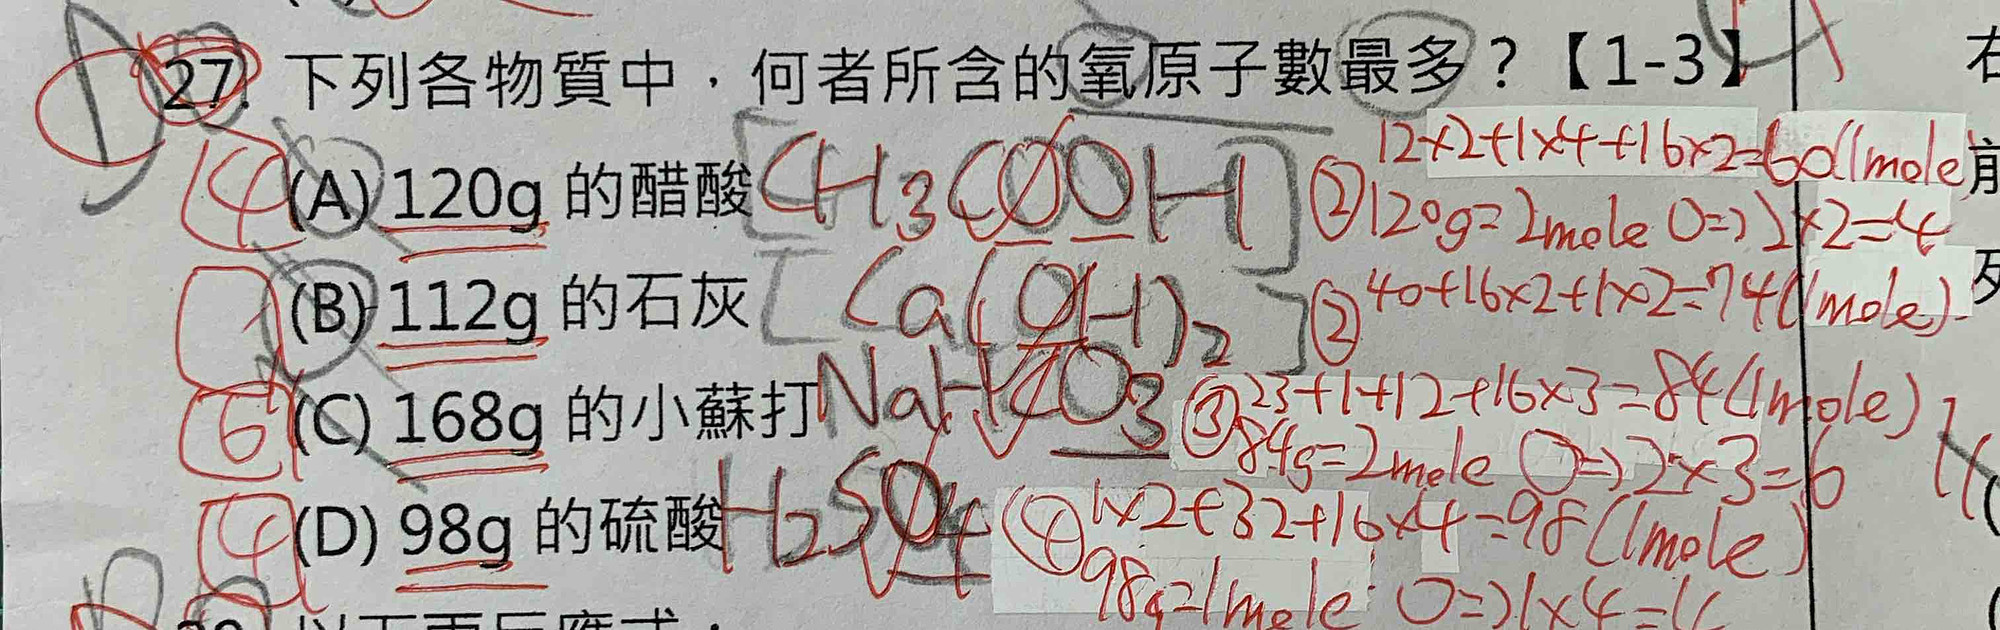 27. 下列各物質中，何者所含的氧原子數最多？【1-3】
4 (A) 120g 的醋酸 [CH3COOH] ② 12×2+1×4+16×2=60(1mole)
120g=2mole O=>2×2=4
(B) 112g 的石灰 [Ca(OH)2] ② 40+16×2+1×2=74(1mole)
6 (C) 168g 的小蘇打 NaHCO3 ③ 23+1+12+16×3=84(1mole)
84g=2mole O=>2×3=6
4 (D) 98g 的硫酸 H2SO4 ④ 1×2+32+16×4=98(1mole)
98g=1mole O=>1×4=4
右
前
列